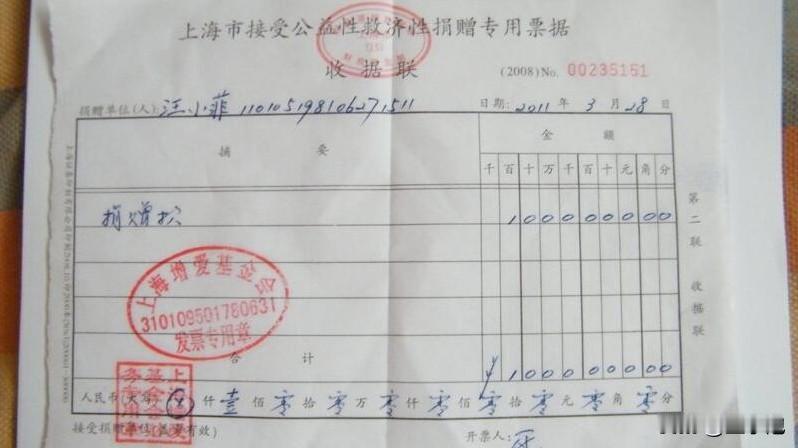 上海市接受公益性救济性捐赠专用票据
收据联
(2008)No. 00235151
捐赠单位(人): 汪小菲 110105198106271511 日期: 2011 年 3 月 28 日
摘 要 金 额
千 百 十 万 千 百 十 元 角 分
捐赠款 100000000
第二联 收据联
上海增爱基金会
310109501780631
发票专用章
合 计 ¥100000000
人民币(大写) ⊗ 仟 壹 佰 零 拾 零 万 零 仟 零 佰 零 拾 零 元 零 角 零 分
接受捐赠单位(盖章有效) 开票人: